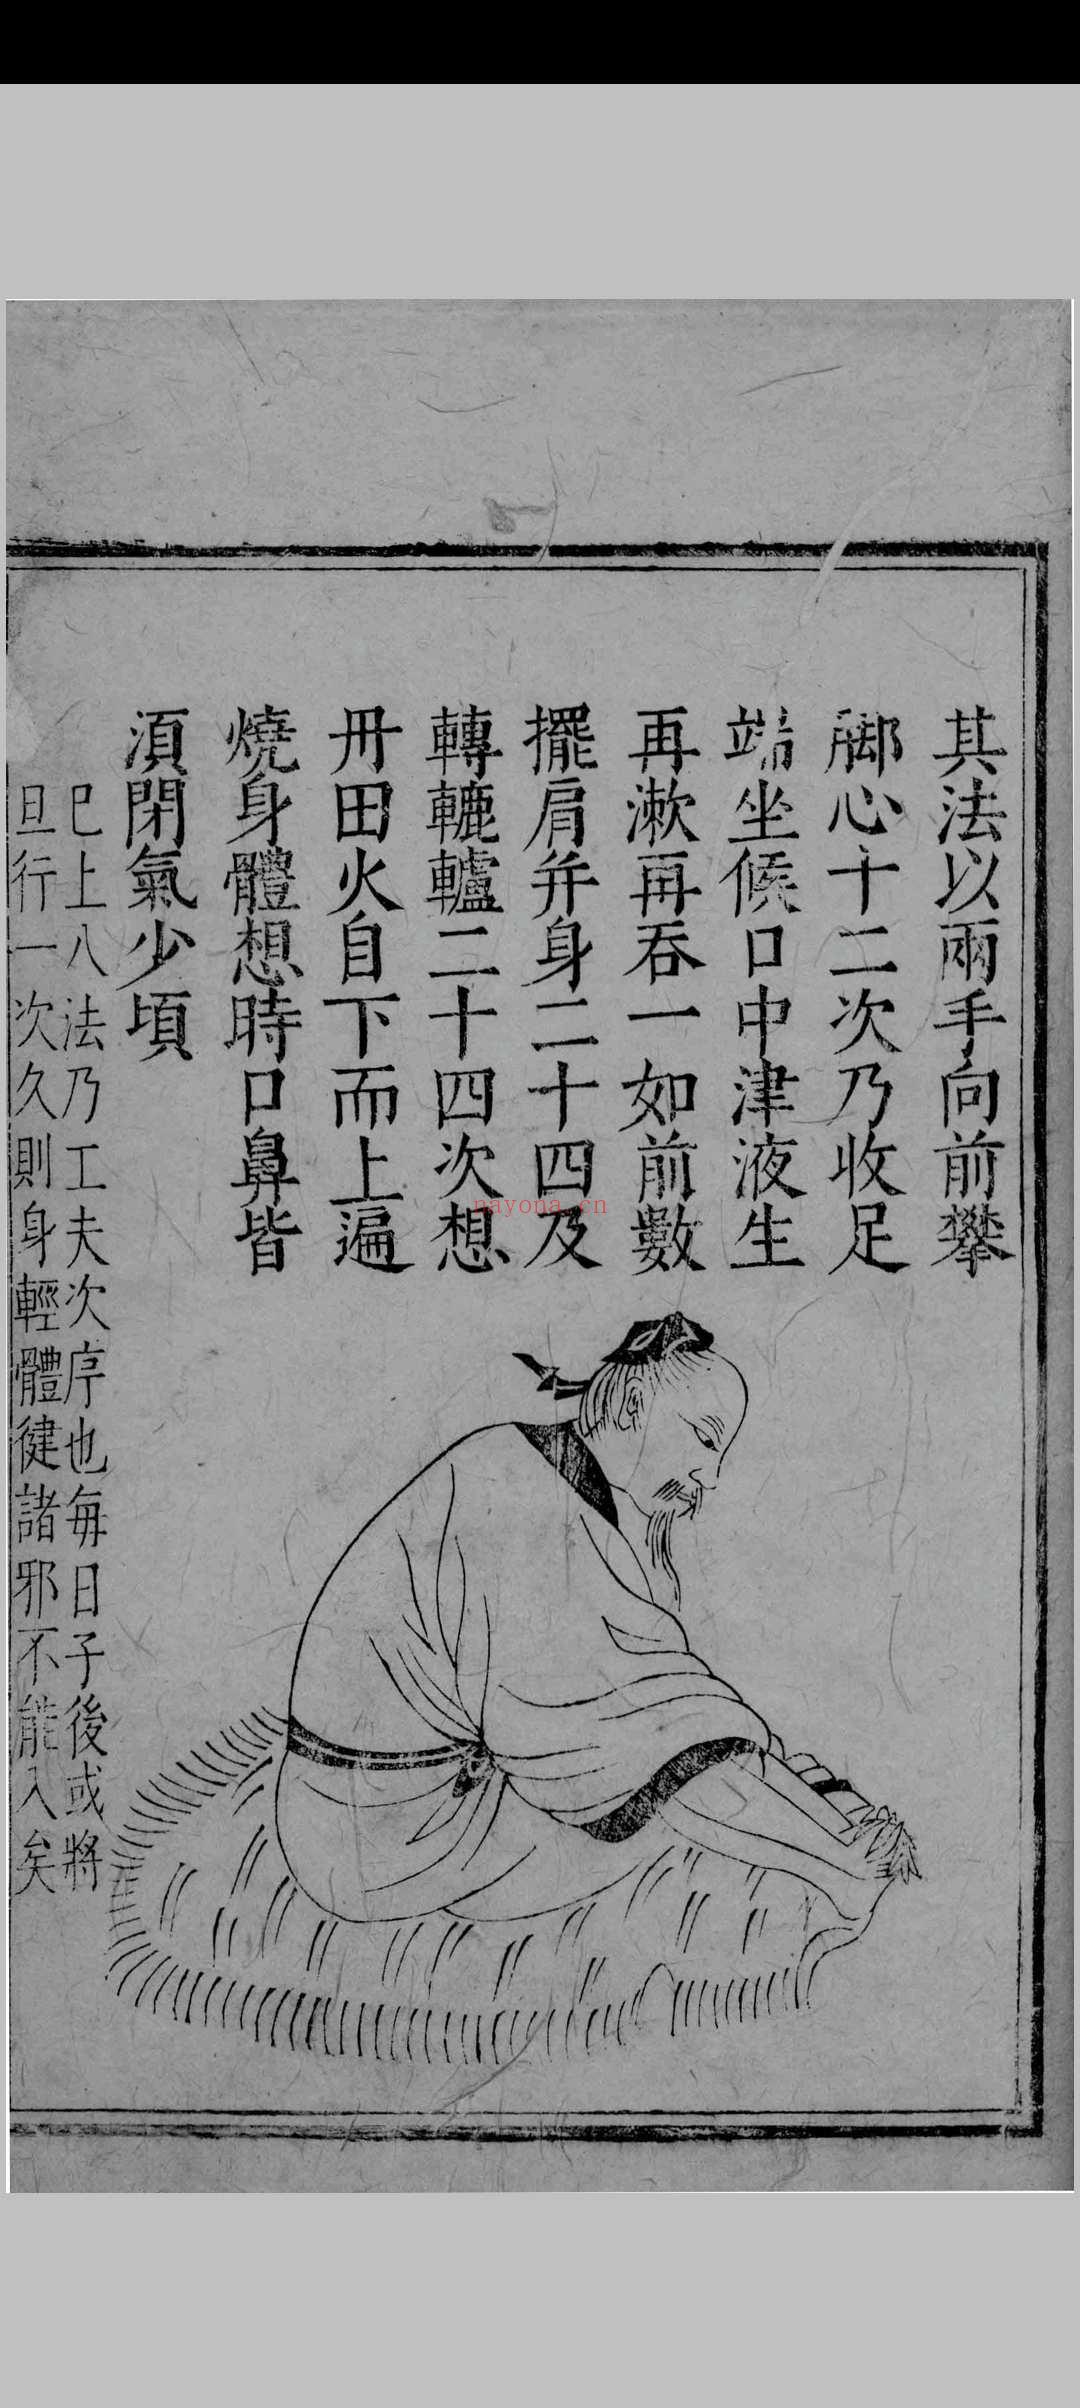 其法以兩手向前攀
脚心十二次乃收足
端坐候口中津液生
再漱再吞一如前數
擺肩并身二十四及
轉轆轤二十四次想
丹田火自下而上遍
燒身體想時口鼻皆
湏閉氣少頃
巳上八法乃工夫次序也每日子後或將
旦行一次久則身輕體健諸邪不能入矣
nayona.cn